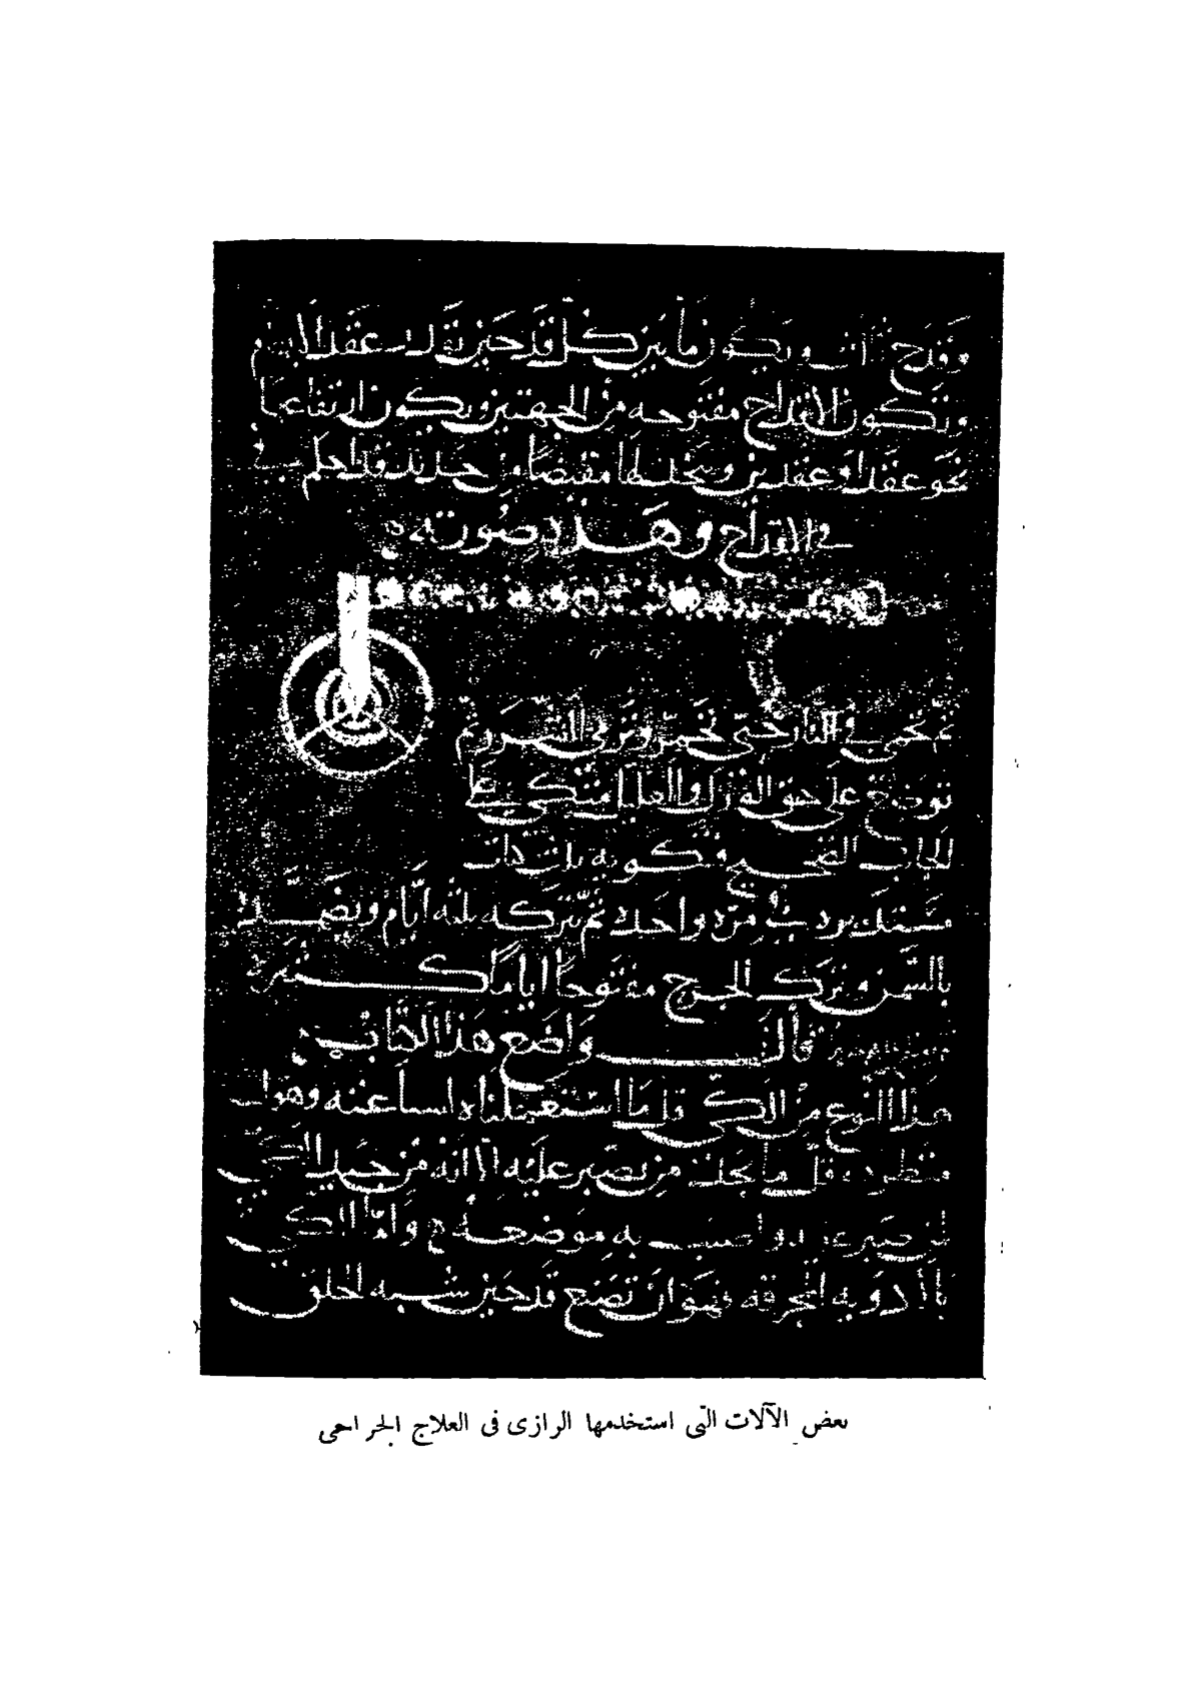 وقدح ويكون ما بين كل قدحين بقدر عقد
وتكون الاقداح مفتوحه من الجهتين ويكون ارتفاعها
نحو عقد او عقدين وتتخذ لها مقبضا من حديد قد احكم
في الاقداح وهذه صورته
ثم تحمى في النار حتى تحمر وترمى الشرر ثم
توضع على حق الورك والعليل متكئ على
الجانب الصحيح فتكويه ثلث كيات
مستديره في مره واحده ثم تتركه ثلثه ايام وتضمده
بالسمن وتترك الجرح مفتوحا اياما كثيره
قال واضع هذا الكتاب
هذا النوع من الكي قل ما استعملناه وهول
منظره وقل ما نجد من يصبر عليه الا انه من جيد الكي
لمن صبر عليه واصيب به موضعه واما الكي
بالادويه المحرقه فهو ان تصنع قدحين شبه الحلق
بعض الآلات التى استخدمها الرازى فى العلاج الجراحى